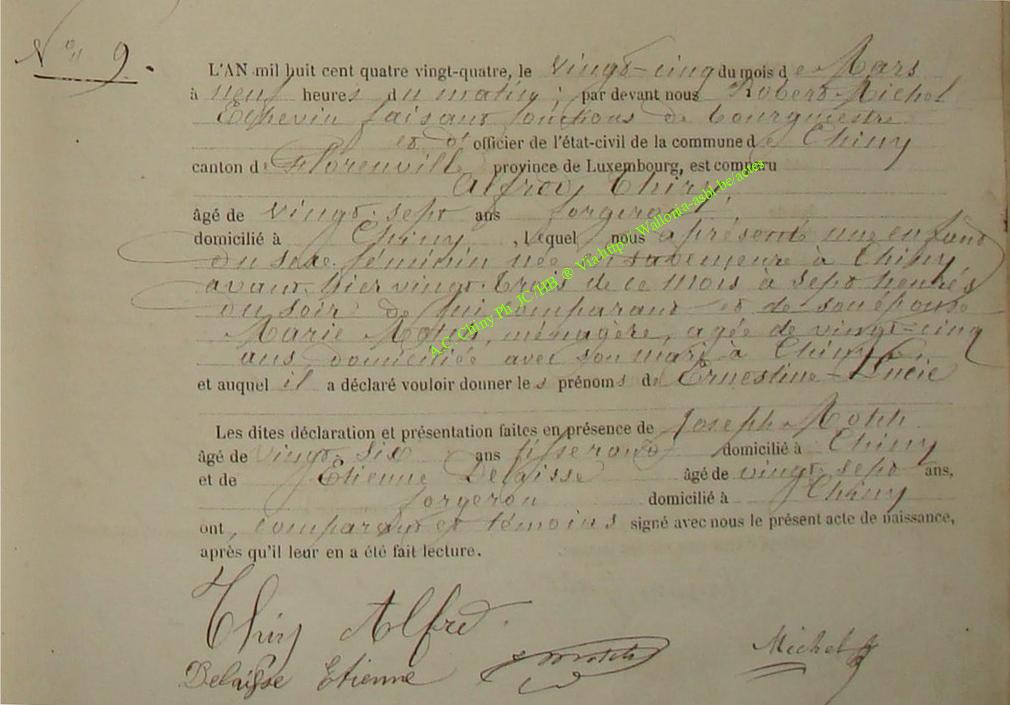 N° 9.
L'AN mil huit cent quatre vingt-quatre, le vingt-cinq du mois de Mars
à neuf heures du matin ; par devant nous Robert Michel
Echevin faisant fonctions de bourgmestre
et d' officier de l'état-civil de la commune de Chiny
canton de Florenville province de Luxembourg, est comparu
Alfred Thiry,
âgé de vingt-sept ans forgeron,
domicilié à Chiny, , lequel nous a présenté une enfant
du sexe féminin née en sa demeure à Chiny
avant hier vingt-trois de ce mois à sept heures
du soir de lui comparant et de son épouse
Marie ménagère, agée de vingt-cinq
ans, domiciliée avec son mari à Chiny
et auquel il a déclaré vouloir donner les prénoms de Ernestine-Lucie
Les dites déclaration et présentation faites en présence de Joseph
âgé de vingt-six ans tisserand domicilié à Chiny
et de Etienne Delaisse âgé de vingt-sept ans,
forgeron domicilié à Chiny
ont, comparant et témoins signé avec nous le présent acte de naissance,
après qu'il leur en a été fait lecture.
Thiry Alfred.
Delaisse Etienne Michel
A.C. Chiny Ph. JC /HH ® Via http : Wallonia-asbl.be/actes